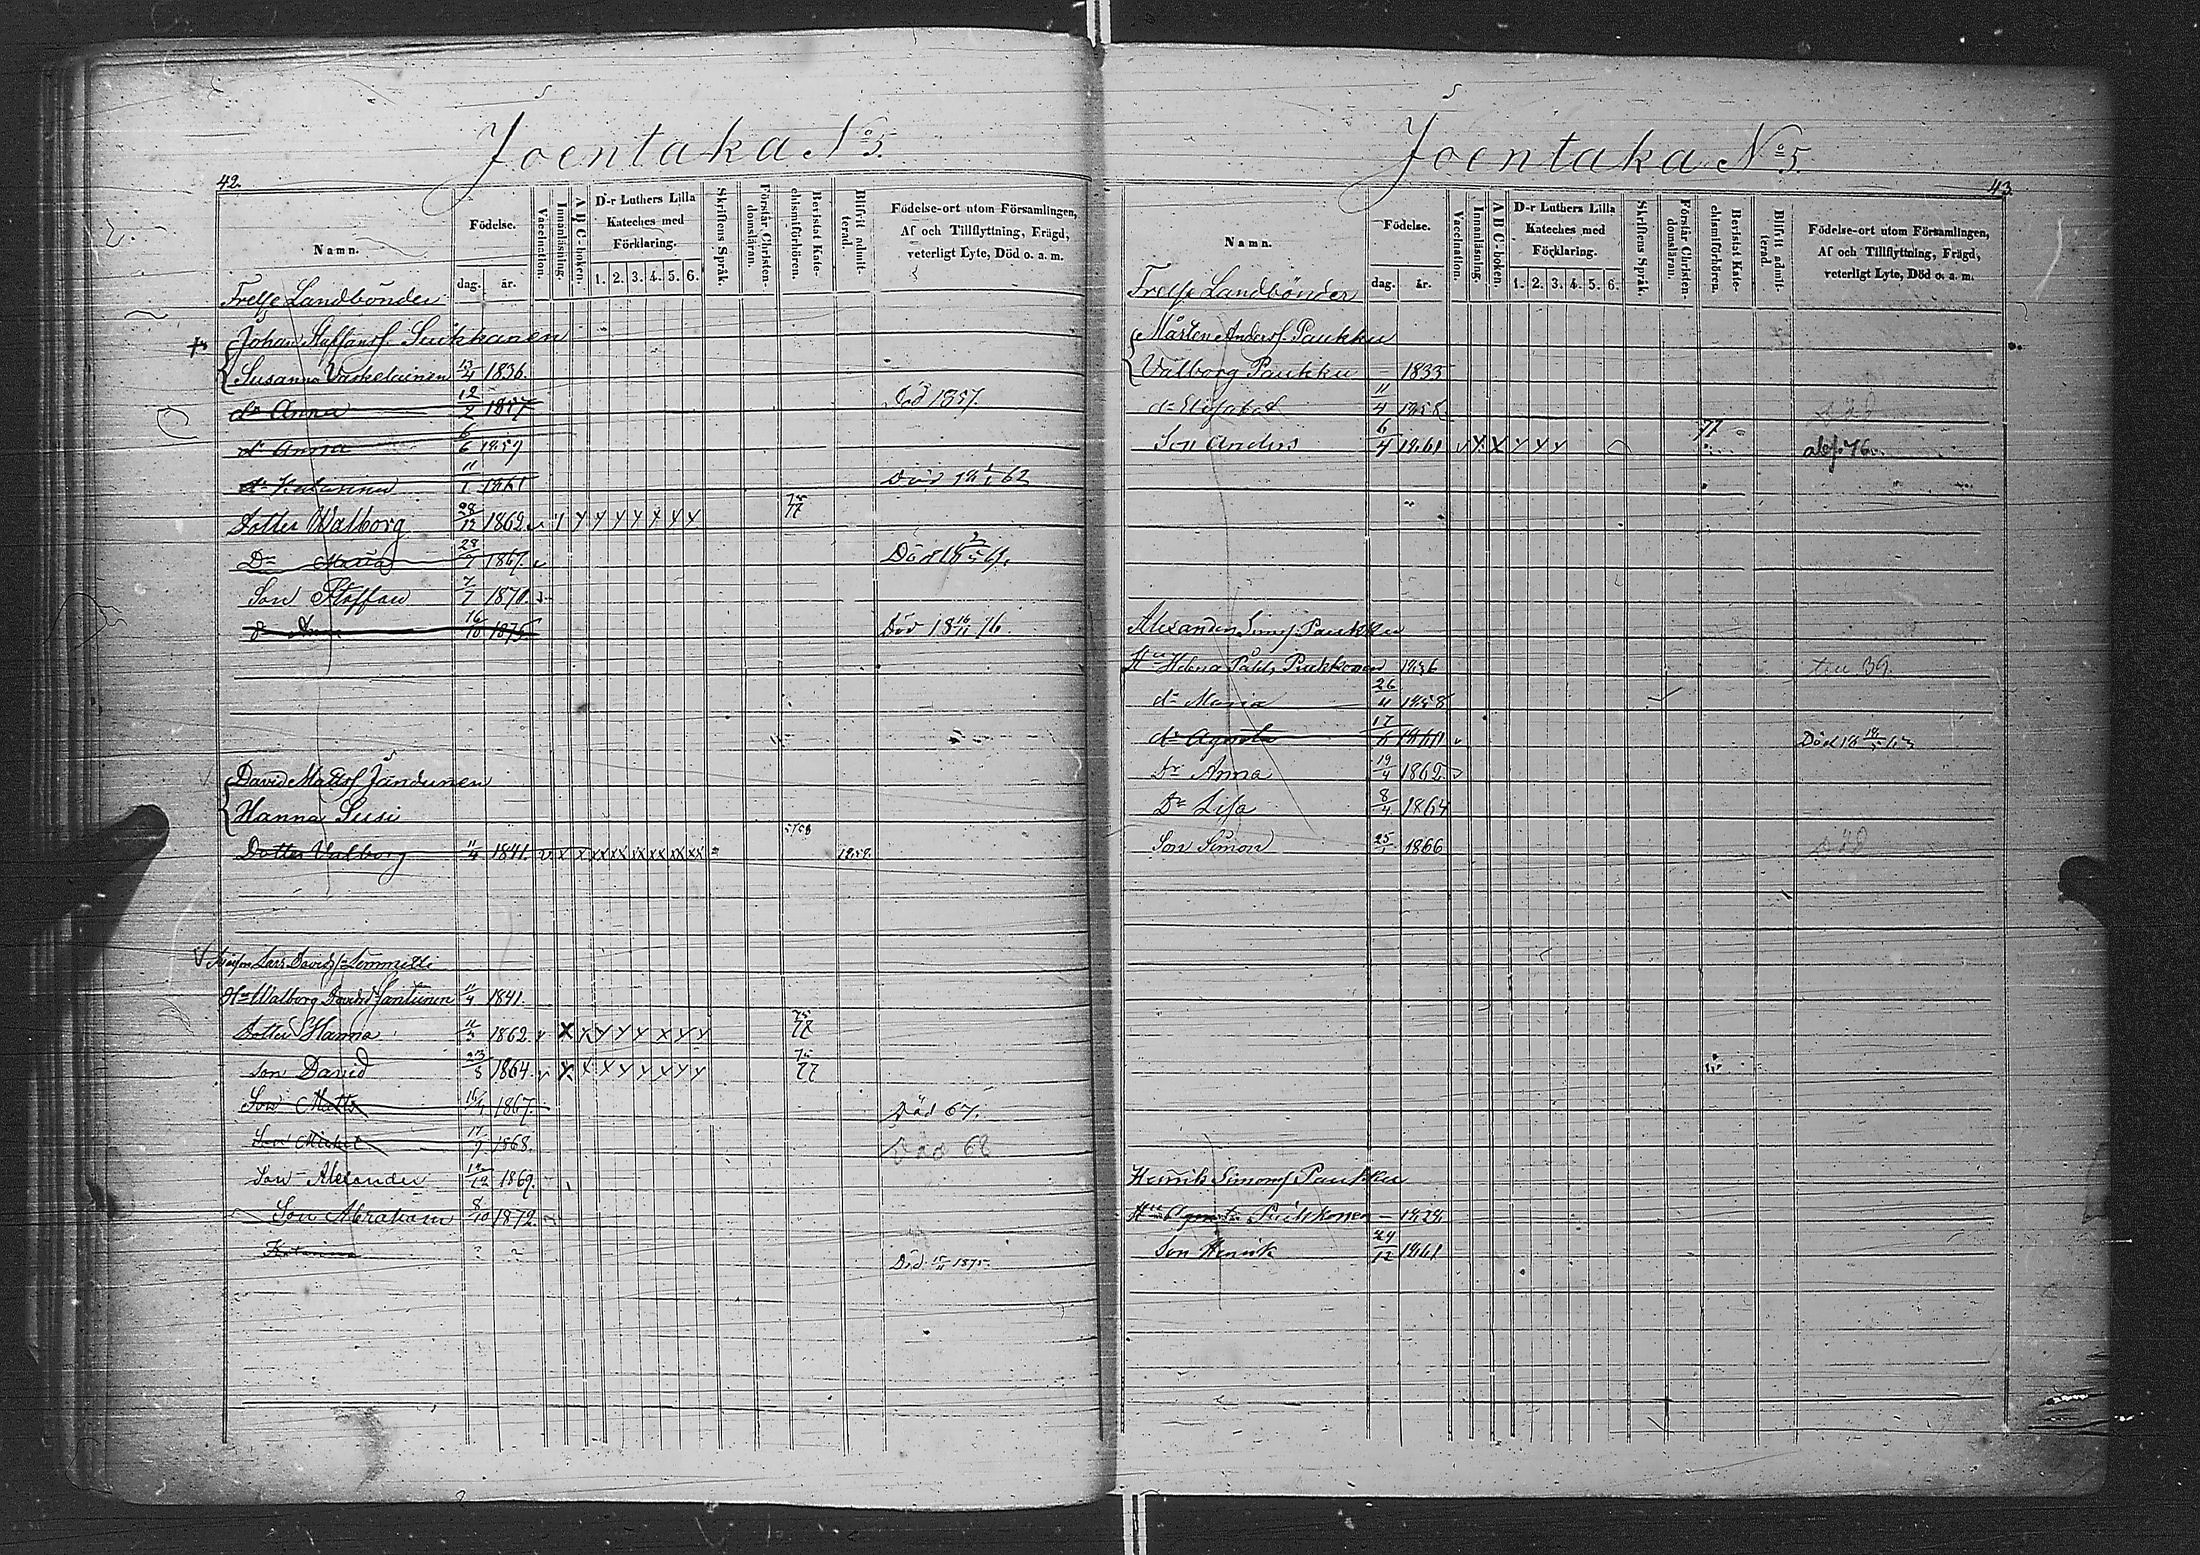 Joentaka No 5.
42.
Namn.
Födelse.
dag.
år.
Vaccination.
Innanläsning.
A B C-boken.
D-r Luthers Lilla Kateches med Förklaring.
1. 2. 3. 4. 5. 6.
Skriftens Språk.
Förstår Christendomsläran.
Bevistat Katechismiförhören.
Blifvit admitterad.
Födelse-ort utom Församlingen,
Af och Tillflyttning, Frägd,
veterligt Lyte, Död o. a. m.
Frelse Landbönder
Johan Staffansf. Suikkanen
Susanna Vaskelainen 13/4 1836.
dr Anna 12/2 1857 Död 1857.
dr Anna 6/6 1859
dr Katarina 11/1 1861 Död 18 1/1 62
Dotter Walborg 28/12 1862 v Y Y Y Y Y X Y Y 75 77
Dr Maria 28/9 1867. v Död 18 2/5 69.
Son Staffan 7/7 1870.
1875 Död 18 16/11 76.
David Mattsf Jändunen
Hanna Susi
Dotter Valborg 11/4 1841. v x x xx xx xx xx xx xx = 5758 1859.
Lars Davidsf. Lömmetti
Hu Walborg Davidsd Jantunen 11/4 1841.
Dotter Hanna 11/3 1862. v X X Y Y Y X Y Y 75 78
Son David 23/8 1864. v Y X X Y Y X Y Y 75 77
Son Matts 16/4 1867. Död 67.
Son Michel 17/9 1868. Död 68
Son Alexander 12/12 1869.
Son Abraham 8/10 1872.
Katarina ? ? Död 15/11 1875.
Joentaka No 5.
43.
Namn.
Födelse.
dag.
år.
Vaccination.
Innanläsning.
A B C-boken.
D-r Luthers Lilla Kateches med Förklaring.
1. 2. 3. 4. 5. 6.
Skriftens Språk.
Förstår Christendomsläran.
Bevistat Katechismiförhören.
Blifvit admitterad.
Födelse-ort utom Församlingen,
Af och Tillflyttning, Frägd,
veterligt Lyte, Död o. a. m.
Frelse Landbönder
Mårten Andersf. Paukku
Valborg Paukku – 1833
dr Elisabet 11/4 1858 Död
Son Anders 6/4 1861 v Y X Y Y Y 77 abf. 76.
Alexander Simsf. Paukku
Hu Helena Pålsd. Puikkonen 1836
dr Maria 26/11 1858
dr Agneta 17/6 1860 v Död 18 18/5 63
Dr Anna 19/4 1862.
Dr Lisa 8/4 1864
Son Simon 25/1 1866 Död
Henrik Simonsf Paukku
Hu Agneta Puikkonen – 1828
Son Henrik 24/12 1861